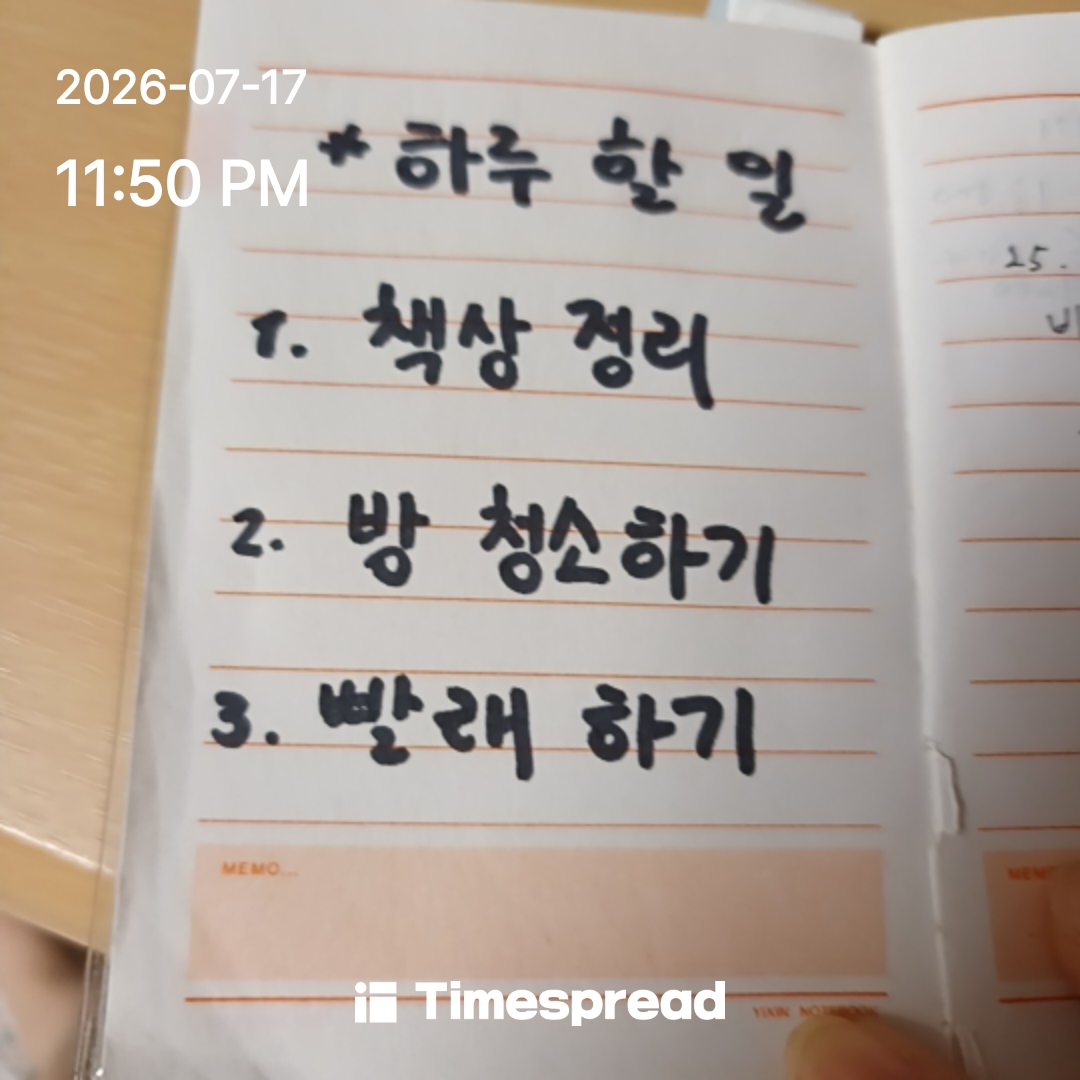 2026-07-17
11:50 PM
* 하루 할 일
1. 책상 정리
2. 방 청소하기
3. 빨래 하기
MEMO...
Timespread
25.